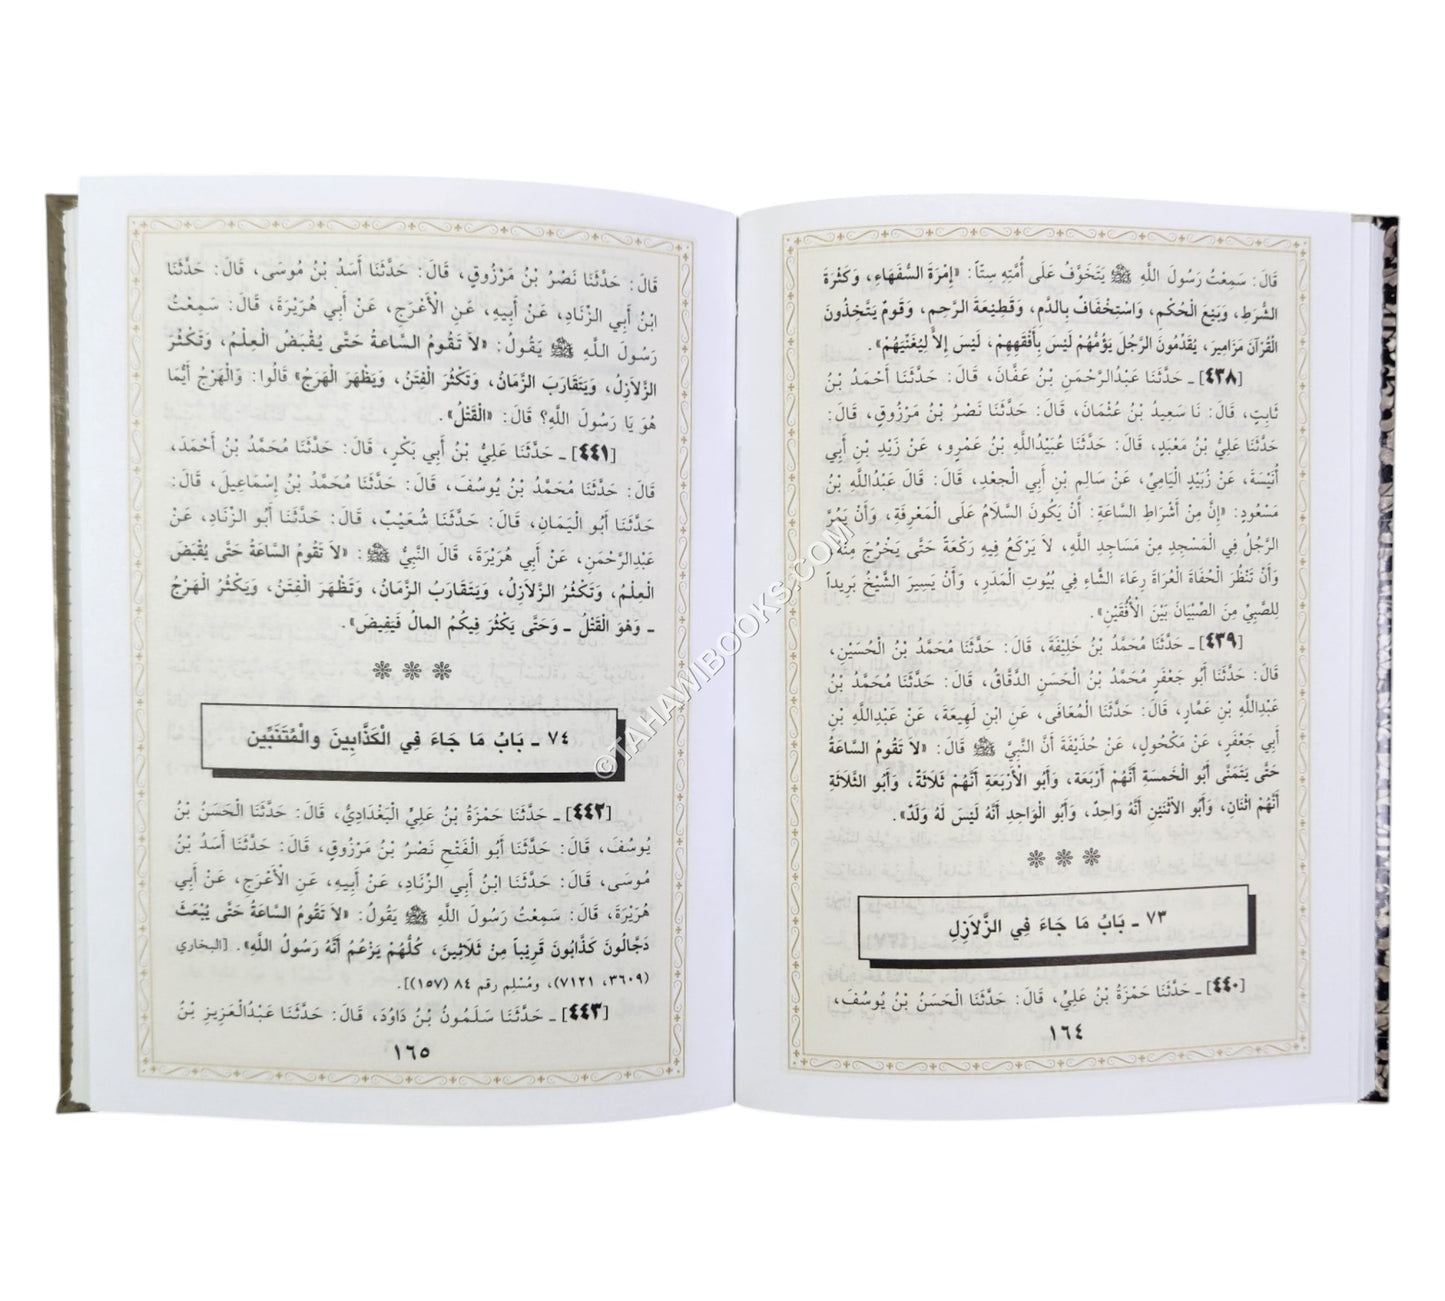 قَالَ: سَمِعْتُ رَسُولَ اللَّهِ ﷺ يَتَخَوَّفُ عَلَى أُمَّتِهِ سِتّاً: «إِمْرَةَ السُّفَهَاءِ، وَكَثْرَةَ
الشُّرَطِ، وَبَيْعَ الْحُكْمِ، وَاسْتِخْفَافٌ بِالدَّمِ، وَقَطِيْعَةَ الرَّحِمِ، وَقَومٌ يَتَّخِذُونَ
الْقُرْآنَ مَزَامِيرَ، يُقَدِّمُونَ الرَّجُلَ يَؤُمُّهُمْ لَيْسَ بِأَفْقَهِهِمْ، لَيْسَ إِلاَّ لِيُغَنِّيَهُمْ».
[٤٣٨] ـ حَدَّثَنَا عَبْدُالرَّحْمَنِ بْنُ عَفَّانَ، قَالَ: حَدَّثَنَا أَحْمَدُ بْنُ
ثَابِتٍ، قَالَ: نَا سَعِيدُ بْنُ عُثْمَانَ، قَالَ: حَدَّثَنَا نَصْرُ بْنُ مَرْزُوقٍ، قَالَ:
حَدَّثَنَا عَلِيُّ بْنُ مَعْبَدٍ، قَالَ: حَدَّثَنَا عُبَيْدُاللَّهِ بْنُ عَمْرٍو، عَنْ زَيْدِ بْنِ أَبِي
أُنَيْسَةَ، عَنْ زُبَيْدٍ الْيَامِيِّ، عَنْ سَالِمِ بْنِ أَبِي الْجعْدِ، قَالَ: قَالَ عَبْدُاللَّهِ بْنُ
مَسْعُودٍ: «إِنَّ مِنْ أَشْرَاطِ السَّاعَةِ: أَنْ يَكُونَ السَّلَامُ عَلَى الْمَعْرِفَةِ، وَأَنْ يَمُرَّ
الرَّجُلُ فِي الْمَسْجِدِ مِنْ مَسَاجِدِ اللَّهِ، لاَ يَرْكَعُ فِيهِ رَكْعَةً حَتَّى يَخْرُجَ مِنْهُ،
وَأَنْ تَنْظُرَ الْحُفَاةَ الْعُرَاةَ رِعَاءَ الشَّاءِ فِي بُيُوتِ الْمَدَرِ، وَأَنْ يَسِيرَ الشَّيْخُ بَرِيداً
لِلصَّبِيِّ مِنَ الصِّبْيَانِ بَيْنَ الْأُفُقَيْنِ».
[٤٣٩] ـ حَدَّثَنَا مُحَمَّدُ بْنُ خَلِيفَةَ، قَالَ: حَدَّثَنَا مُحَمَّدُ بْنُ الْحُسَيْنِ،
قَالَ: حَدَّثَنَا أَبُو جَعْفَرٍ مُحَمَّدُ بْنُ الْحَسَنِ الدَّقَّاقُ، قَالَ: حَدَّثَنَا مُحَمَّدُ بْنُ
عَبْدِاللَّهِ بْنِ عَمَّارٍ، قَالَ: حَدَّثَنَا الْمُعَافَى، عَنِ ابْنِ لَهِيعَةَ، عَنْ عَبْدِاللَّهِ بْنِ
أَبِي جَعْفَرٍ، عَنْ مَكْحُولٍ، عَنْ حُذَيْفَةَ أَنَّ النَّبِيَّ ﷺ قَالَ: «لاَ تَقُومُ السَّاعَةُ
حَتَّى يَتَمَنَّى أَبُو الْخَمسَةِ أَنَّهُمْ أَرْبَعَة، وَأَبُو الْأَرْبَعَةِ أَنَّهُمْ ثَلاَثَةٌ، وَأَبُو الثَّلاَثَةِ
أَنَّهُمْ اثْنَانِ، وَأَبُو الاثْنَيْنِ أَنَّهُ وَاحِدٌ، وَأَبُو الْوَاحِدِ أَنَّهُ لَيْسَ لَهُ وَلَدٌ».
٧٣ ـ بَابُ مَا جَاءَ فِي الزَّلاَزِلِ
[٤٤٠] ـ حَدَّثَنَا حَمْزَةُ بْنُ عَلِيٍّ، قَالَ: حَدَّثَنَا الْحَسَنُ بْنُ يُوسُفَ،
١٦٤
قَالَ: حَدَّثَنَا نَصْرُ بْنُ مَرْزُوقٍ، قَالَ: حَدَّثَنَا أَسَدُ بْنُ مُوسَى، قَالَ: حَدَّثَنَا
ابْنُ أَبِي الزِّنَادِ، عَنْ أَبِيهِ، عَنِ الْأَعْرَجِ، عَنْ أَبِي هُرَيْرَةَ، قَالَ: سَمِعْتُ
رَسُولَ اللَّهِ ﷺ يَقُولُ: «لاَ تَقُومُ السَّاعةُ حَتَّى يُقْبَضَ الْعِلْمُ، وَتَكْثُرَ
الزَّلاَزِلُ، وَيَتَقَارَبَ الزَّمَانُ، وَتَكْثُرَ الْفِتَنُ، وَيَظْهَرَ الْهَرَجُ» قَالُوا: وَالْهَرْجُ أَيُّمَا
هُوَ يَا رَسُولَ اللَّهِ؟ قَالَ: «الْقَتْلُ».
[٤٤١] ـ حَدَّثَنَا عَلِيُّ بْنُ أَبِي بَكْرٍ، قَالَ: حَدَّثَنَا مُحَمَّدُ بْنُ أَحْمَدَ،
قَالَ: حَدَّثَنَا مُحَمَّدُ بْنُ يُوسُفَ، قَالَ: حَدَّثَنَا مُحَمَّدُ بْنُ إِسْمَاعِيلَ، قَالَ:
حَدَّثَنَا أَبُو الْيَمَانِ، قَالَ: حَدَّثَنَا شُعَيْبٌ، قَالَ: حَدَّثَنَا أَبُو الزِّنَادِ، عَنْ
عَبْدِالرَّحْمَنِ، عَنْ أَبِي هُرَيْرَةَ، قَالَ النَّبِيُّ ﷺ: «لاَ تَقُومُ السَّاعَةُ حَتَّى يُقْبَضَ
الْعِلْمُ، وَتَكْثُرَ الزَّلاَزِلُ، وَيَتَقَارَبَ الزَّمَانُ، وَتَظْهَرَ الْفِتَنُ، وَيَكْثُرَ الْهَرْجُ
ـ وَهوَ الْقَتْلُ ـ وَحَتَّى يَكْثُرَ فِيكُمُ المالُ فَيَفِيضَ».
٧٤ ـ بَابُ مَا جَاءَ فِي الْكَذَّابِينَ والْمُتَنَبِّين
[٤٤٢] ـ حَدَّثَنَا حَمْزَةُ بْنُ عَلِيٍّ الْبَغْدَادِيُّ، قَالَ: حَدَّثَنَا الْحَسَنُ بْنُ
يُوسُفَ، قَالَ: حَدَّثَنَا أَبُو الْفَتْحِ نَصْرُ بْنُ مَرْزُوقٍ، قَالَ: حَدَّثَنَا أَسَدُ بْنُ
مُوسَى، قَالَ: حَدَّثَنَا ابْنُ أَبِي الزِّنَادِ، عَنْ أَبِيهِ، عَنِ الْأَعْرَجِ، عَنْ أَبِي
هُرَيْرَةَ، قَالَ: سَمِعْتُ رَسُولَ اللَّهِ ﷺ يَقُولُ: «لاَ تَقُومُ السَّاعَةُ حَتَّى يُبْعَثَ
دَجَّالُونَ كَذَّابُونَ قَرِيْباً مِنْ ثَلاَثِينَ، كُلُّهُمْ يَزْعُمُ أَنَّهُ رَسُولُ اللَّهِ». [البخاري
(٣٦٠٩، ٧١٢١)، ومُسْلِم رقم ٨٤ (١٥٧)].
[٤٤٣] ـ حَدَّثَنَا سَلَمُونُ بْنُ دَاوُدَ، قَالَ: حَدَّثَنَا عَبْدُالْعَزِيزِ بْنُ
١٦٥
©TAHAWIBOOKS.COM